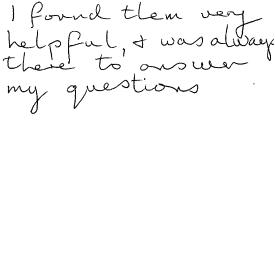 I found them very
helpful, & was always
there to answer
my questions